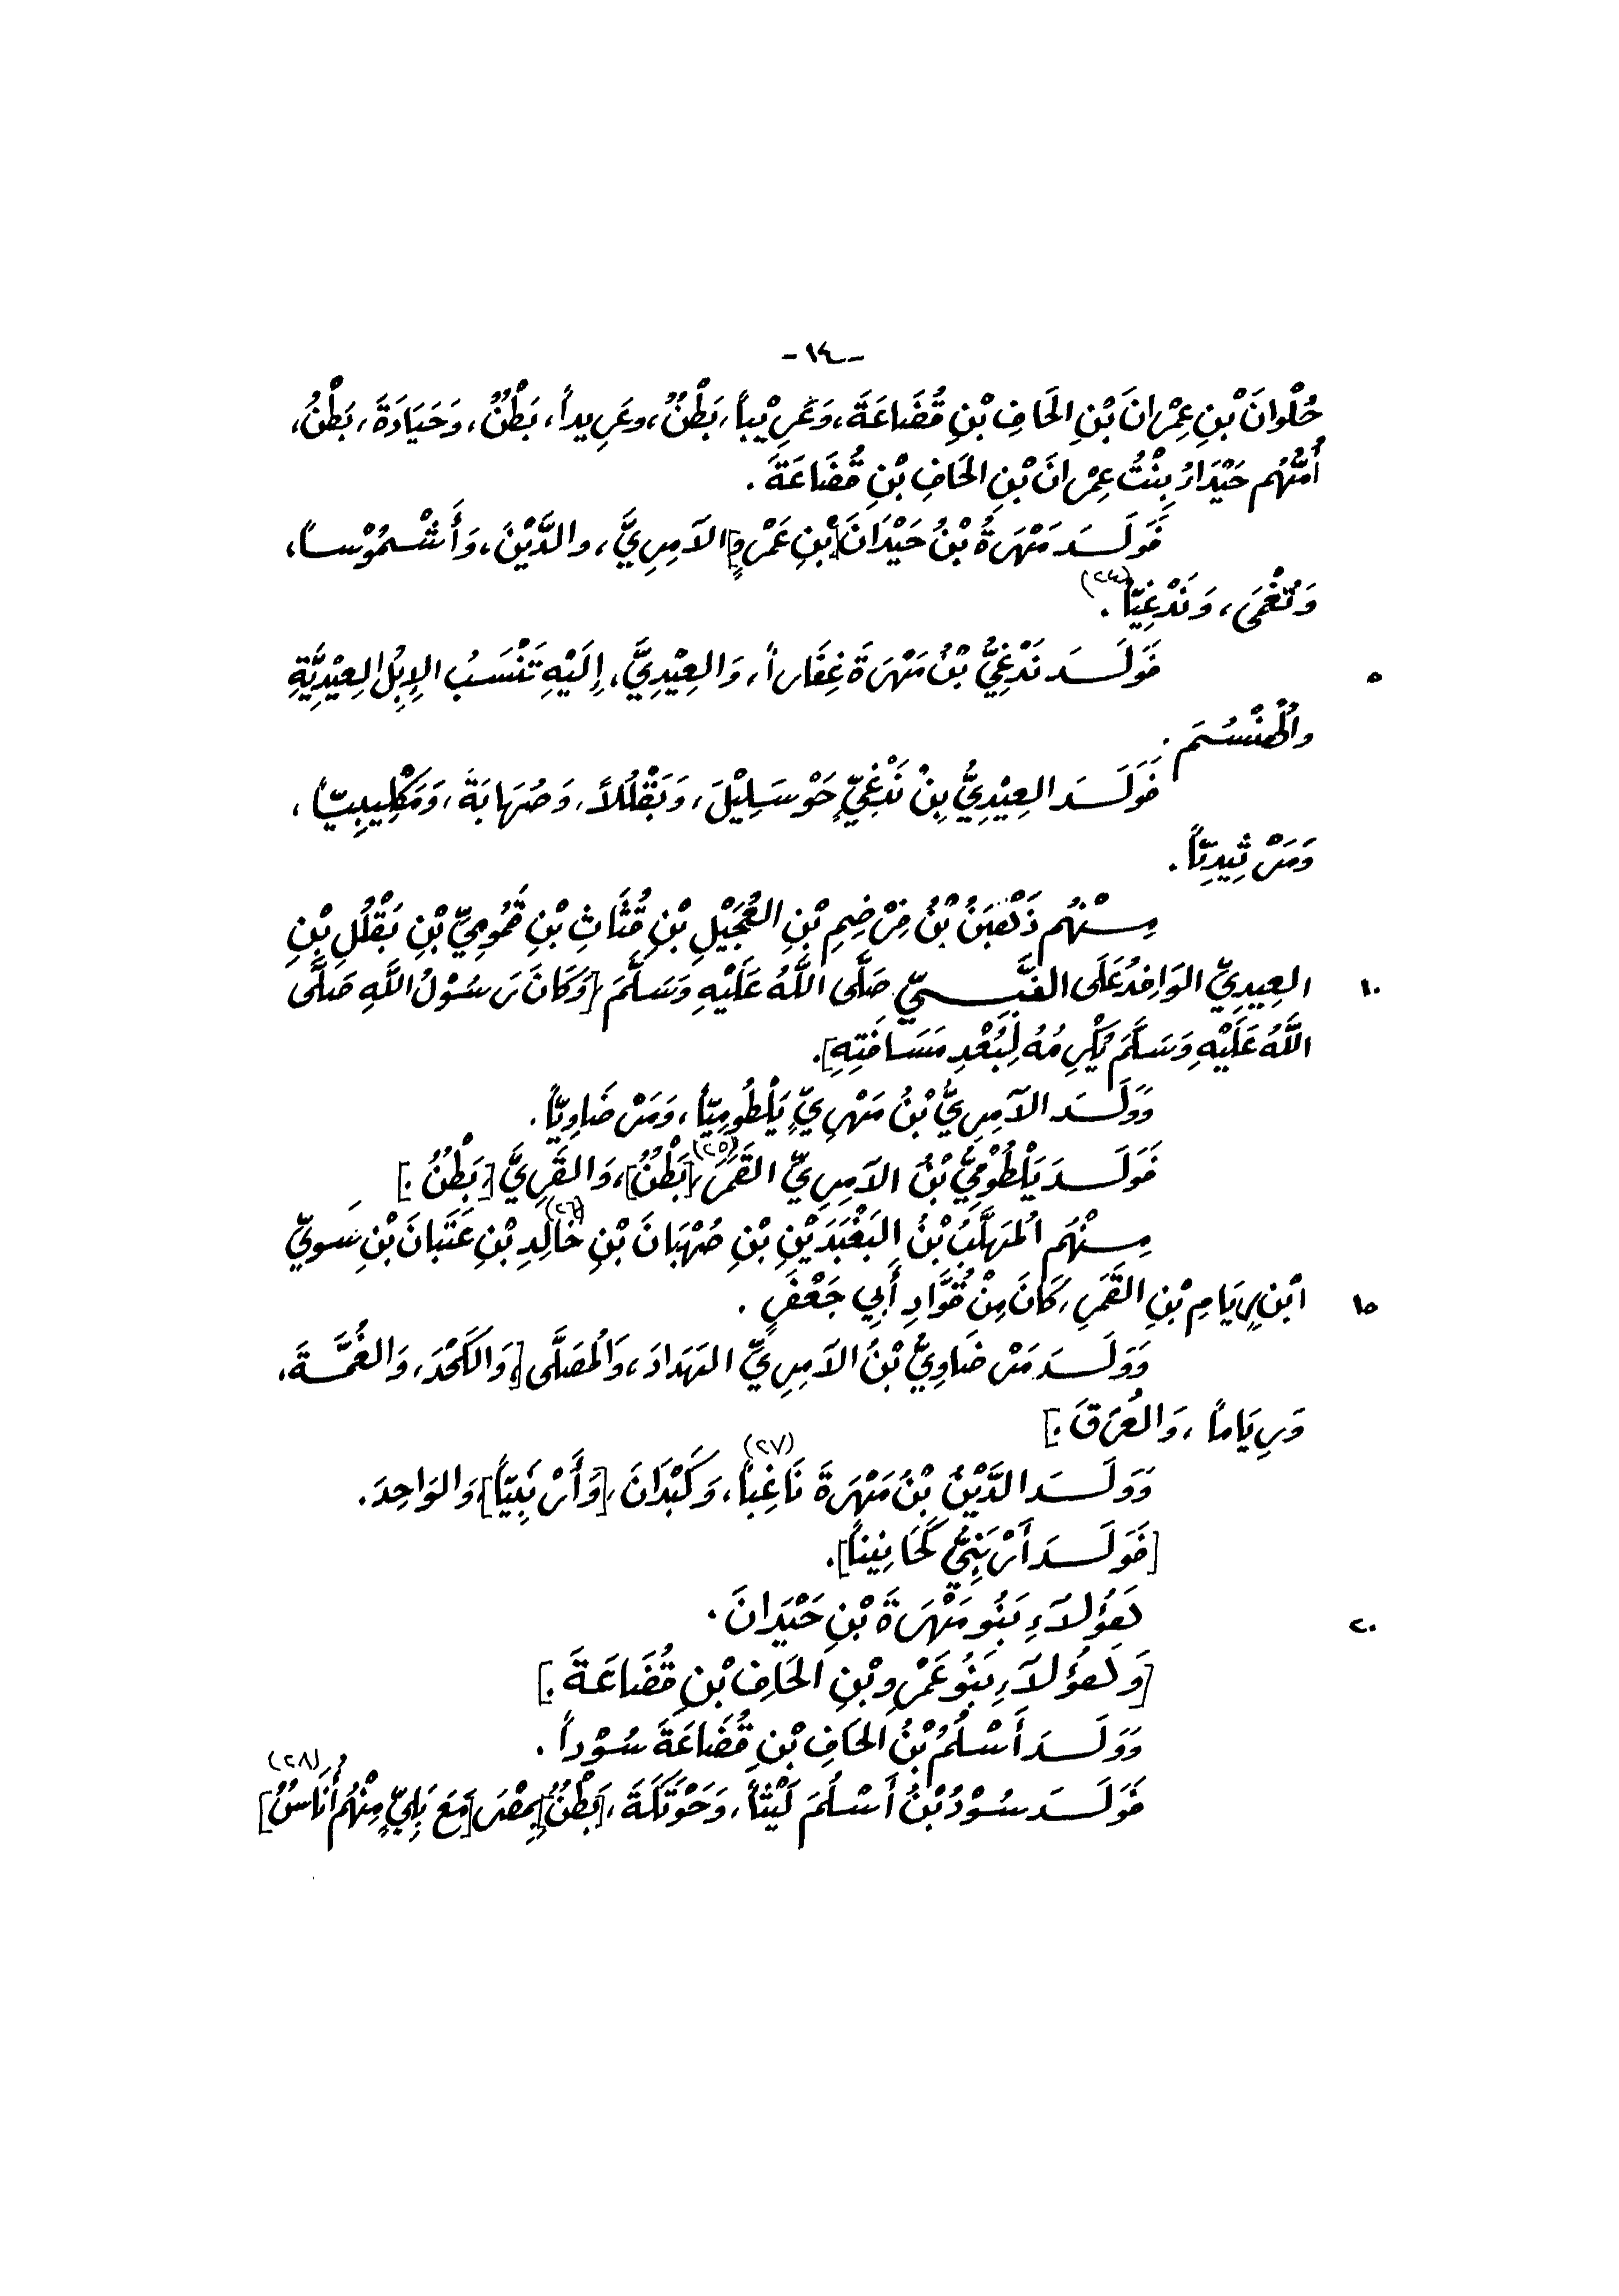 -١٤-
حُلْوانَ بْنِ عِمْرانَ بْنِ الحَافِ بْنِ قُضَاعَةَ، وَعَرِيْباً، بَطْنٌ، وعَرِيداً، بَطْنٌ، وَحَيَادَةَ، بَطْنُ،
أُمُّهُم حَيْدَارُ بِنْتُ عِمْرانَ بْنِ الحَافِ بْنِ قُضَاعَةَ.
فَوَلَــدَ مَهْرَةُ بْنُ حَيْدَانَ [بْنِ عَمْرٍو] الآمِرِيَّ، والدَّيْنَ، وَأَشْمُوْساً،
وَتُغْمَى، وَنَدْغِيّاً (٢٤).
٥ فَوَلَــدَ نَدْغِيُّ بْنُ مَهْرَةَ غِفَاراً، وَالعِيْدِيَّ، إِلَيْهِ تَنْسَبُ الإِبِلُ العِيْدِيَّةِ
والُهنْسُمَ.
فَوَلَــدَ العِيْدِيُّ بِنْ نَدْغِيٍّ حَوْسَلِيْلَ، وَبَقْلُلاً، وَصُهَابَةَ، وَمَكْلِيبِيّاً،
وَمَرْثِيدِيّاً.
مِــنْهُم ذَهْبَنُ بْنُ قِرْضِمِ بْنِ العُجَيْلِ بْنِ قُثَاثِ بْنِ قَمُومِيِّ بْنِ بَقْلُلِ بْنِ
١٠ العِيدِيِّ الوَافِدُ عَلَى النَّبِــيِّ صَلَّى اللَّهُ عَلَيْهِ وَسَلَّمَ [وَكَانَ رَسُوْلُ اللَّهِ صَلَّى
اللَّهُ عَلَيْهِ وَسَلَّمَ يُكْرِمُهُ لِبُعْدِ مَسَافَتِهِ].
وَوَلَــدَ الآمِرِيُّ بْنُ مَهْرِيٍّ يَلْطُومِيّاً، وَمَرْضَاوِيّاً.
فَوَلَــدَ يَلْطُوْمِيُّ بْنُ الآمِرِيِّ القَمَرَ (٢٥)، [بَطْنٌ]، وَالقَرِيَّ [بَطْنُ.]
مِــنْهَم المُهَلَّبُ بْنُ البَغْبَدَيْنِ بْنِ صُهْبَانَ بْنِ خَالِدِ (٢٦) بْنِ عَتَبانَ بْنِ سَوِيِّ
١٥ ابْنِ رِيَامِ بْنِ القَمَرِ، كَانَ مِنْ قُوَّادِ أَبِي جَعْفَرٍ.
وَوَلَــدَ مَرْضَاوِيُّ بْنُ الآمِرِيِّ الهَدَادَ، وَالمُصَلَّى [وَالكَحْدَ، وَالغُمَّــةَ،
وَرِيَاماً، وَالعُرَقَ.]
وَوَلَــدَ الدَّيْنُ بْنُ مَهْرَةَ نَاغِباً (٢٧)، وَكَبْدَانَ، [وَأَرْنَبِيّاً]، وَالوَاحِدَ.
[فَوَلَــدَ أَرْنَبِيُّ كَحَانِيناً].
٢٠ هَؤُلاَءِ بَنُو مَهْرَةَ بْنِ حَيْدَانَ.
[وَهَؤُلآءِ بَنُو عَمْرِو بْنِ الحَافِ بْنِ قُضَاعَةَ.]
وَوَلَــدَ أَسْلُمُ بْنُ الحَافِ بْنِ قُضَاعَةَ سُوْداً.
فَوَلَــدَ سُوْدُ بْنُ أَسْلُمَ لَيْثاً، وَحَوْتَكَةَ، [بَطْنٌ] بِمِصْرَ [مَعَ بَلِيٍّ مِنْهُم أُنَاسٌ] (٢٨)